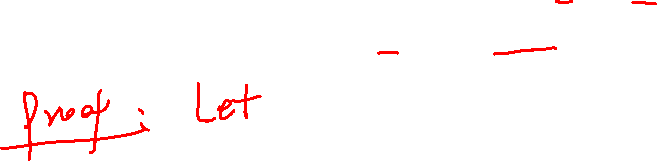 Proof: Let